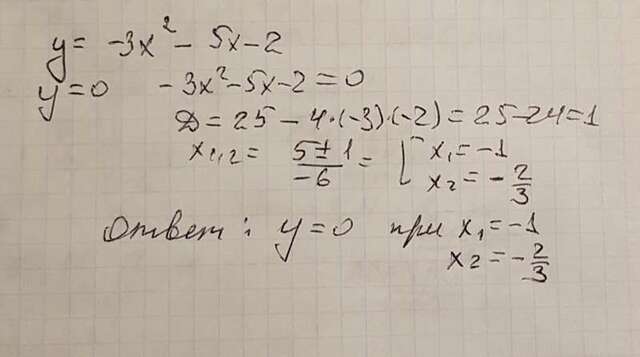 y = -3x² - 5x - 2
y = 0 -3x² - 5x - 2 = 0
D = 25 - 4·(-3)·(-2) = 25-24=1
x₁,₂ = (5 ± 1)/(-6) = [ x₁ = -1
x₂ = -2/3
Ответ: y = 0 при x₁ = -1
x₂ = -2/3